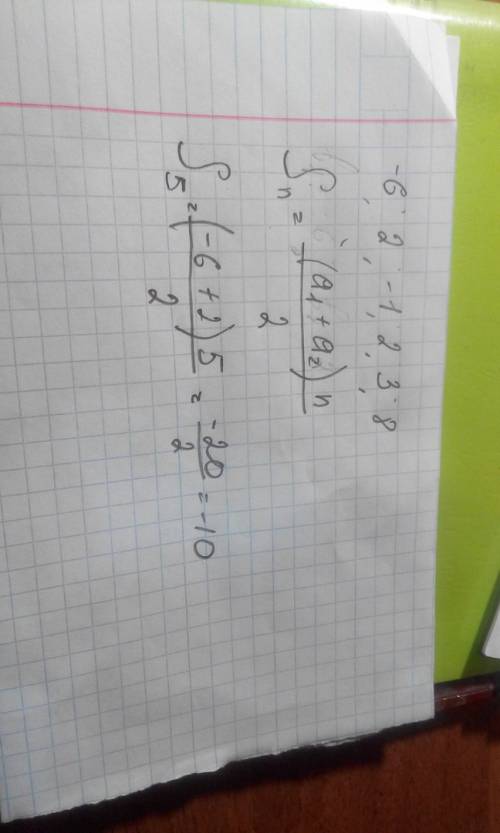 -6; 2; -1, 2, 3; 8
Sn = (a1 + a2)n / 2
S5 = (-6 + 2)5 / 2 = -20 / 2 = -10